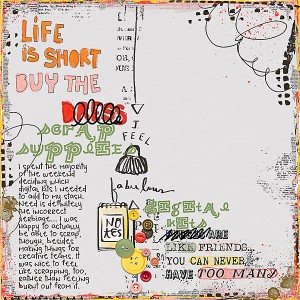 LIFE
IS SHORT
BUY THE
SCRAP
SUPPLIES
I FEEL
fabulous
NO
TES
digital
kits
ARE
LIKE FRIENDS...
YOU CAN NEVER
HAVE TOO MANY
I spent the majority
of the weekend
deciding which
digital kits I needed
to add to my stash.
Need is definitely
the incorrect
verbiage... I was
happy to actually
be able to scrap,
though, besides
making things for
creative teams. It
was nice to feel
like scrapping, too,
rather than feeling
burnt out from it.